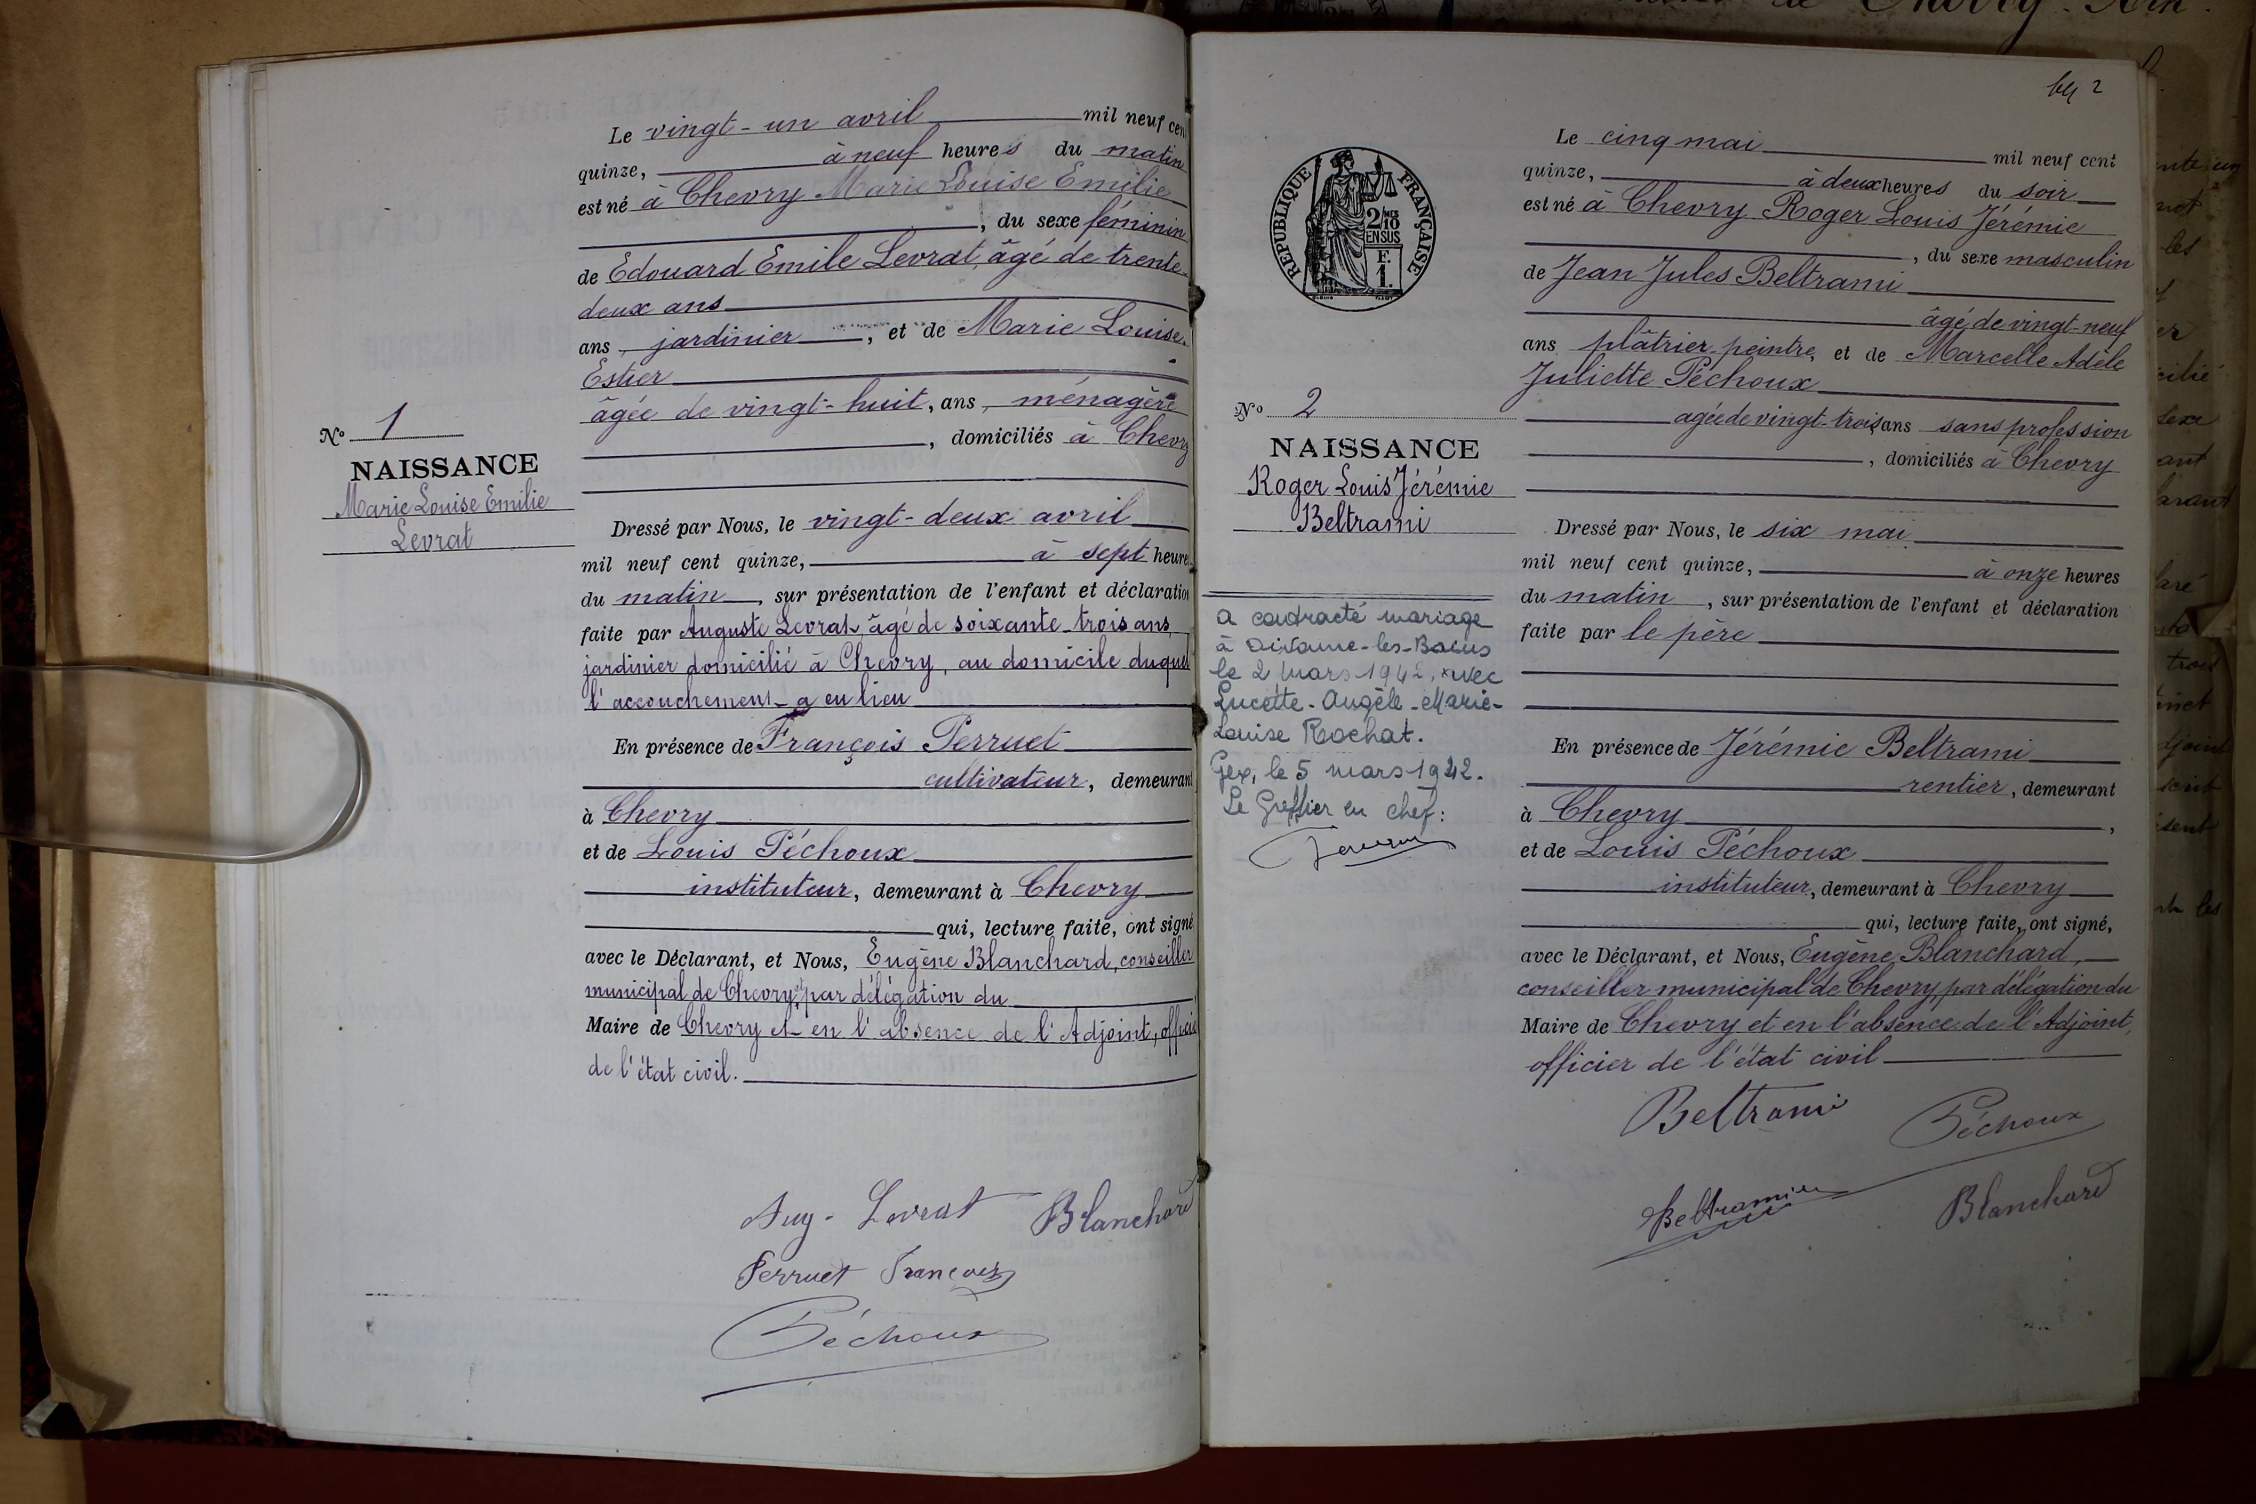 Le vingt-un avril mil neuf cen
quinze, à neuf heures du matin
est né à Chevry Marie Louise Emilie
, du sexe féminin
de Edouard Emile Levrat, âgé de trente-
deux ans
ans, jardinier, et de Marie Louise
Estier
âgée de vingt-huit, ans, ménagère
, domiciliés à Chevry
No 1
NAISSANCE
Marie Louise Emilie
Levrat
Dressé par Nous, le vingt-deux avril
mil neuf cent quinze, à sept heures
du matin, sur présentation de l'enfant et déclaration
faite par Auguste Levrat, âgé de soixante-trois ans,
jardinier domicilié à Chevry, au domicile duquel
l'accouchement a eu lieu
En présence de François Perruet
cultivateur, demeurant
à Chevry
et de Louis Péchoux
instituteur, demeurant à Chevry
qui, lecture faite, ont signé
avec le Déclarant, et Nous, Eugène Blanchard, conseiller
municipal de Chevry, par délégation du
Maire de Chevry et en l'absence de l'Adjoint, officie
de l'état civil.
Aug. Levrat Blanchard
Perruet François
Péchoux
2
RÉPUBLIQUE FRANÇAISE
2/10
EN SUS
F.
1.
Le cinq mai mil neuf cent
quinze, à deux heures du soir
est né à Chevry Roger Louis Jérémie
, du sexe masculin
de Jean Jules Beltrami
âgé de vingt-neuf
ans plâtrier-peintre, et de Marcelle Adèle
Juliette Péchoux
agée de vingt-trois, ans sans profession
, domiciliés à Chevry
No 2
NAISSANCE
Roger Louis Jérémie
Beltrami
Dressé par Nous, le six mai
mil neuf cent quinze, à onze heures
du matin, sur présentation de l'enfant et déclaration
faite par le père
a contracté mariage
à Divonne-les-Bains
le 2 mars 1942, avec
Lucette-Angèle-Marie-
Louise Rochat.
Gex, le 5 mars 1942.
Le Greffier en chef:
En présence de Jérémie Beltrami
rentier, demeurant
à Chevry,
et de Louis Péchoux
instituteur, demeurant à Chevry
qui, lecture faite, ont signé,
avec le Déclarant, et Nous, Eugène Blanchard,
conseiller municipal de Chevry, par délégation du
Maire de Chevry et en l'absence de l'Adjoint,
officier de l'état civil
Beltrami
Péchoux
Beltrami
Blanchard